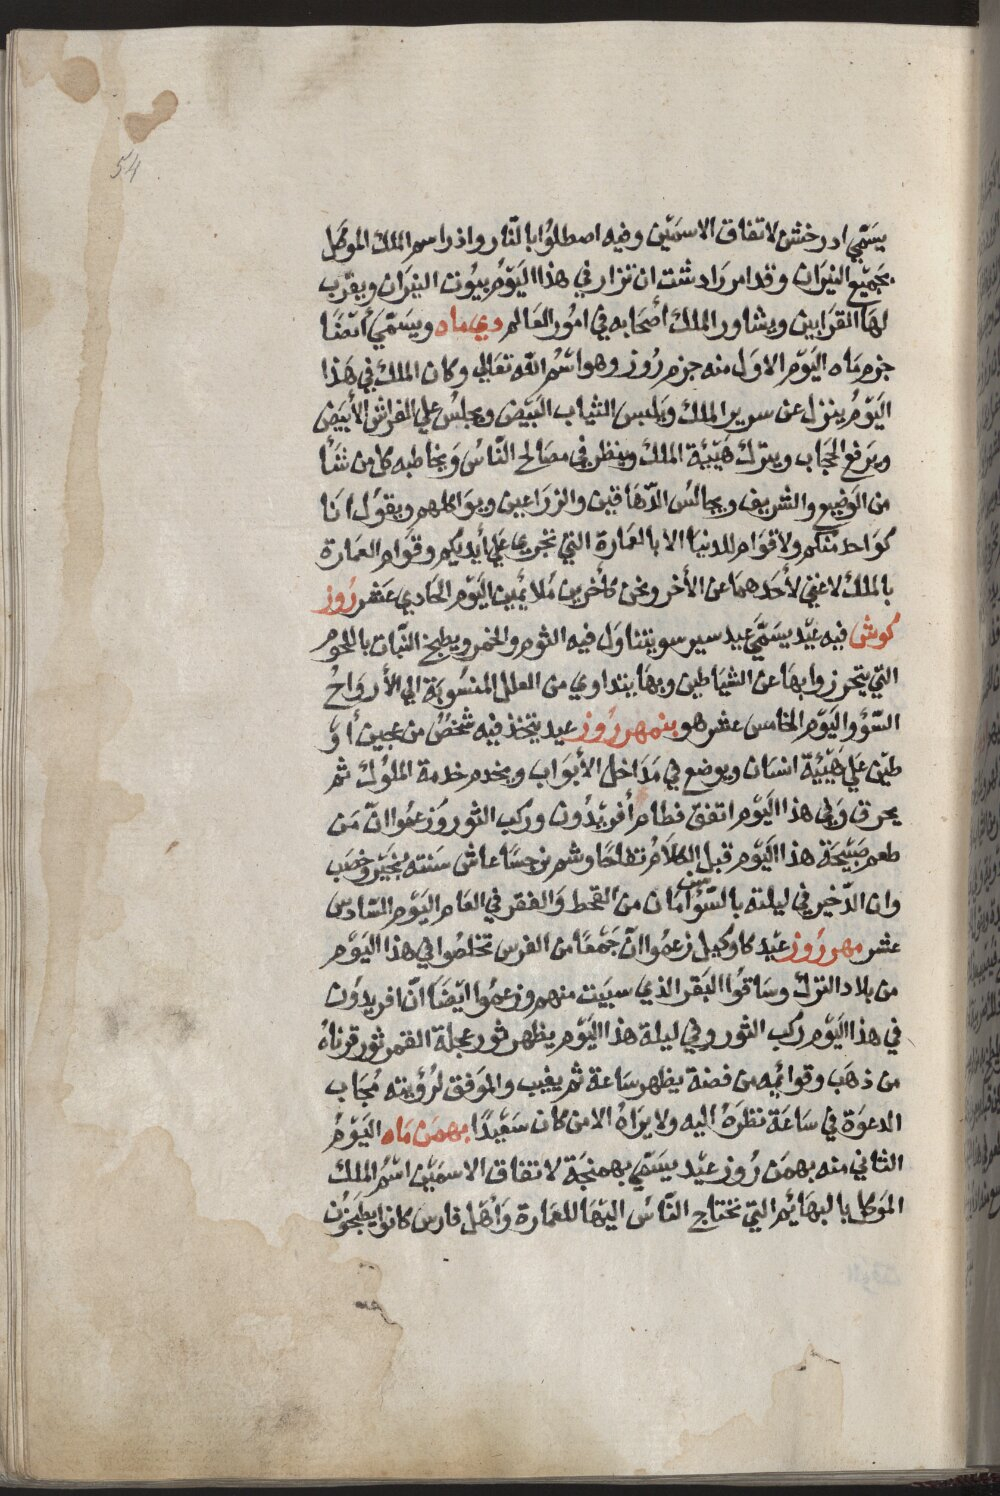 54
يسَمّي ادرخش لاتفاق الاسمَيْن وفيه اصطلوُا بالنّار واذر اسم الملك الموكل
بجَميْع النيرَان وقد امر زادشت ان تزار في هذا اليَوْم بيوُت النيرَان ويقرّب
لهَا القرَابين ويشاور الملك أصْحَابه في امُور العَالم دي ماه ويسَمّي أيْضًا
خرم مَاه اليَوْم الاوَل منه خرم رُوز وهو اسْمُ الله تعَالي وكان الملك في هَذا
اليَوْم ينزل عن سرير الملك ويَلبس الثيَاب البَيْض ويجلسُ علي الفراش الأبيَض
ويرَفع الحجَاب ويترك هَيْبَة الملك وينظر في مصَالح النّاسُ وَيخاطبه كل من شَأ
من الوَضيع والشريف ويجالسُ الدّهَاقين والزرَاعين ويوَاكلهم ويقوُل انَا
كوَاحد منكم ولا قوَام للدنيَا الا بالعمَارة التي تجري عَلي أيديكم وقوَام العمَارة
بالملك لا غني لأحَدهمَا عن الأخر ونحن كأخرين مُلائمين اليَوْم الحَادي عَشر رُوز
كوش فيه عيْد يسَمّي عيد سير سو يتناوَل فيه الثوم والخمر ويطبخ النّبَات باللحُوم
التي يتحرزوا بهَا عن الشيَاطين وبهَا يتداوي من العلل المنسُوبَة الي الأروَاحُ
السّوْ واليَوْم الخامس عشر هو بنمهر رُوز عيد يتخذ فيه شخصُ من عجين أوْ
طيْن عَلي هَيْئة انسَان ويوضع في مَدَاخل الأبوَاب ويخدم خدمة الملوُك ثم
يحرق وَفي هذا اليَوْم اتفق فطام أفريْدُون وركب الثور وَزعمُوا انّ مَن
طعم صَبيْحَة هذا اليَوْم قبل الكلاَمْ تفاحًا وشم نرجسًا عاش سَنته بخَيْر وخصَب
وان الدّخير في ليلته بالسّوسن أمَان من القحط وَالفقر في العَام اليَوْم السّادس
عشر مهر رُوز عيْد كاوكيل زعمُوا انّ جَمْعًا من الفرس تخلصُوا في هذا اليَوْم
من بلاد الترك وسَاقوُا البَقر الذي سبيَت منهم وزعموُا ايْضَا انّ افريدُون
في هذا اليَوْم ركب الثور وفي ليلة هذا اليَوْم يظهر ثور عجلة القمر ثور قرناهُ
من ذهَب وقوائمه من فضة يظهر سَاعة ثم يغيب والموَفق لرُؤيته مُجَاب
الدعوَة في سَاعَة نظرَهُ اليه ولا يرَاهُ الا من كان سَعيْدًا بهمَن مَاه اليَوْم
الثاني منه بهمَن رُوز عيْد يسَمّي بهمنجَة لاتفاق الاسمَيْن اسْمُ الملك
الموَكل بالبهَائم التي تحتاج النّاسُ اليْهَا للعمَارة وَأهْل فارس كانوُا يطبخوُن